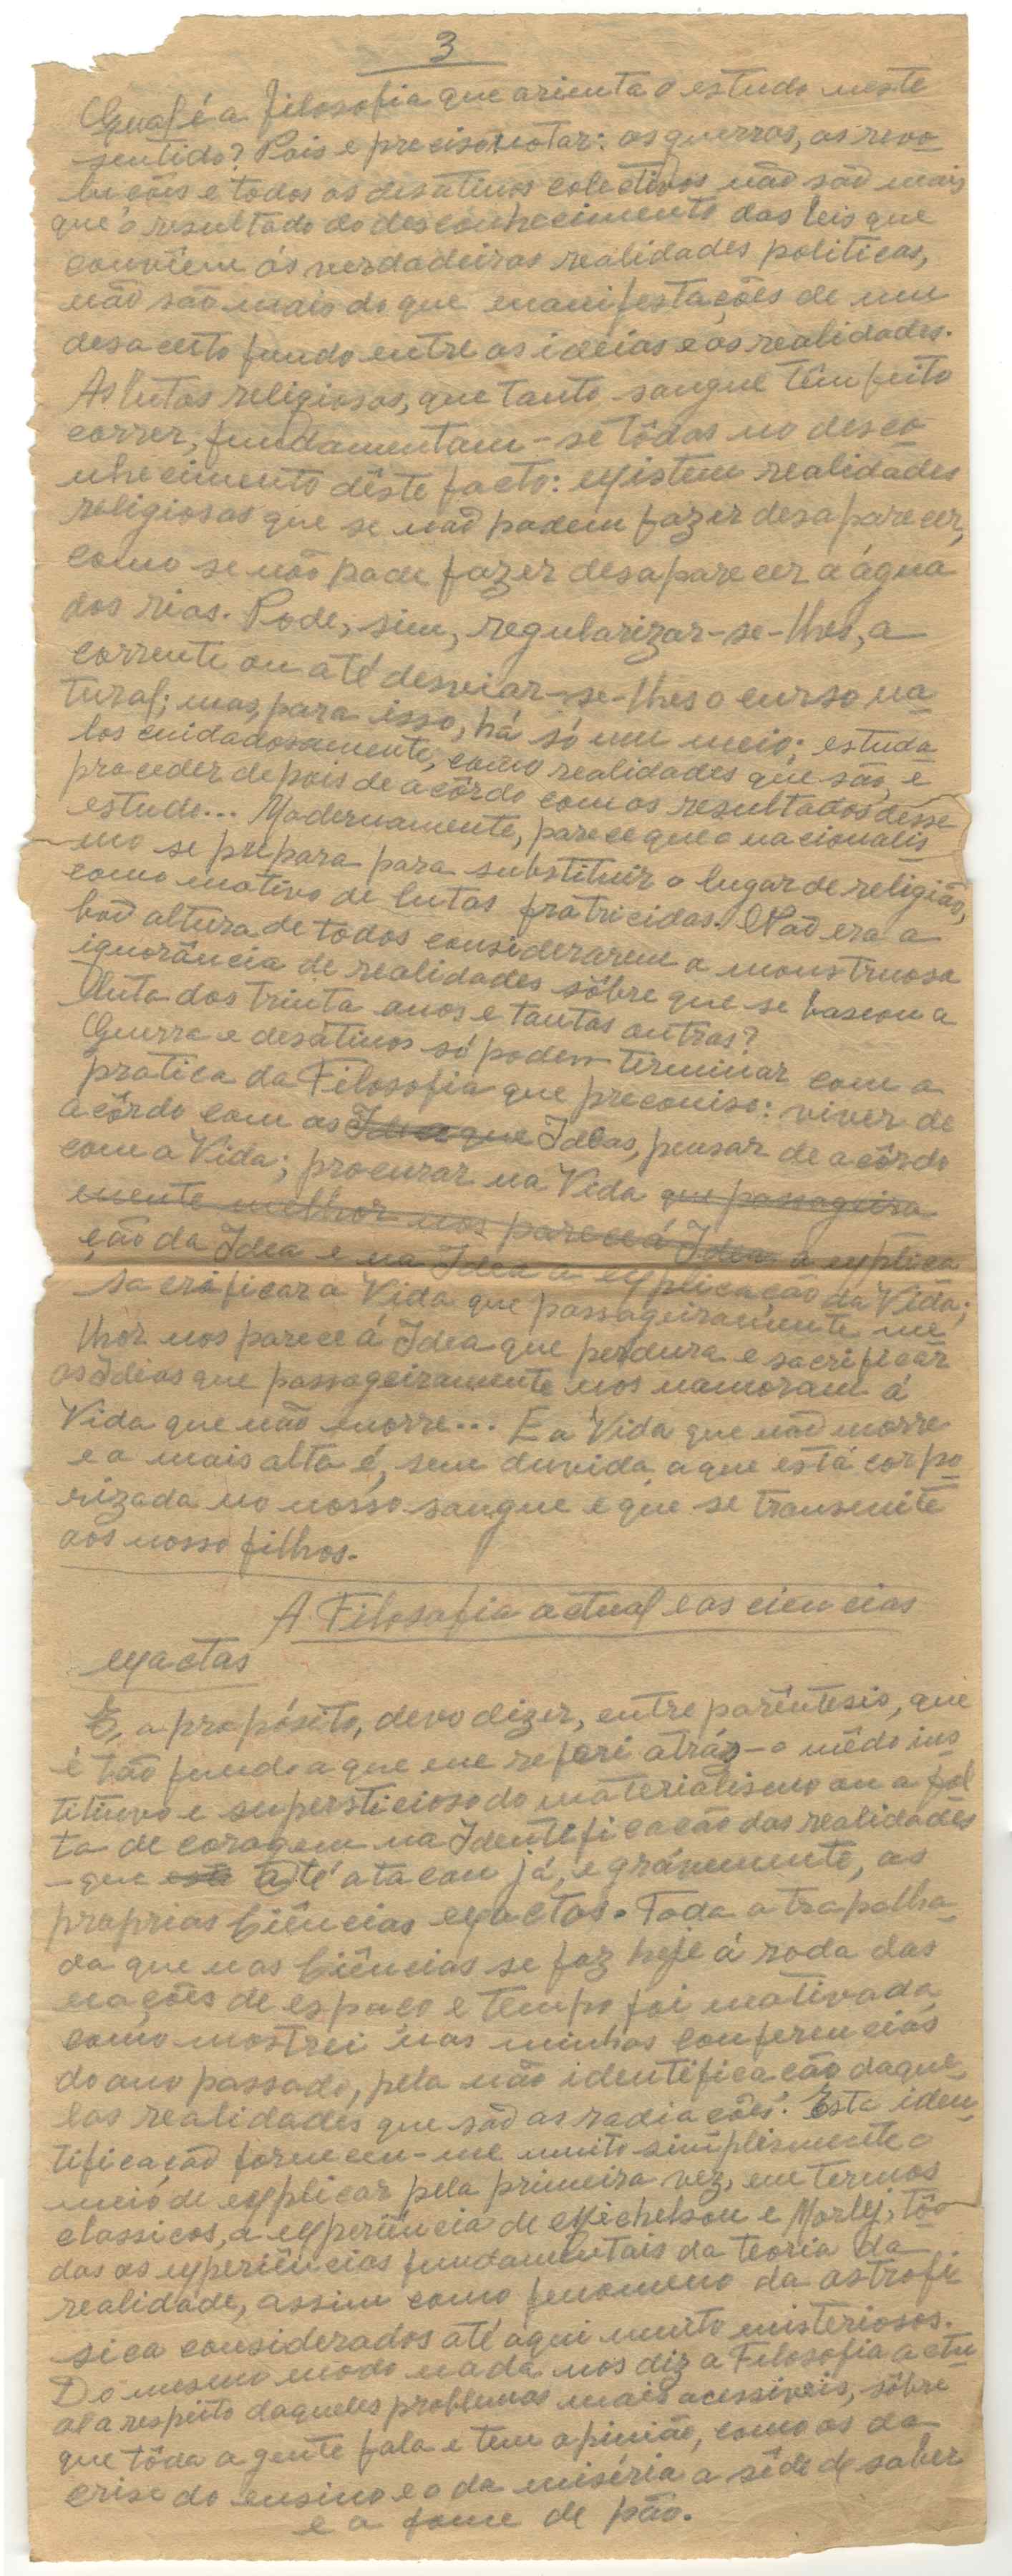 3
Qual é a filosofia que orienta o estudo neste
sentido? Pois é preciso notar: as guerras, as revo-
luções e todos os desatinos colectivos não são mais
que o resultado do desconhecimento das leis que
convêm ás verdadeiras realidades politicas,
não são mais do que manifestações de um
desacerto fundo entre as ideias e as realidades.
As lutas religiosas, que tanto sangue têm feito
correr, fundamentam-se tôdas no desco-
nhecimento dêste facto: existem realidades
religiosas que se não podem fazer desaparecer,
como se não pode fazer desaparecer a água
dos rios. Pode, sim, regularizar-se-lhes, a
corrente ou até desviar-se-lhes o curso na-
tural; mas, para isso, há só um meio: estuda-
los cuidadosamente, como realidades que são, e
proceder depois de acôrdo com os resultados desse
estudo... Modernamente, parece que o nacionalis-
mo se prepara para substituir o lugar de religião,
como motivo de lutas fratricidas. Não era a
boa altura de todos considerarem a monstruosa
ignorância de realidades sôbre que se baseou a
luta dos trinta anos e tantas outras?
Guerra e desatinos só podem terminar com a
pratica da Filosofia que preconiso: viver de
acôrdo com as Idea que Ideas, pensar de acôrdo
com a Vida; procurar na Vida que passageira-
mente melhor nos parece á Idea a explica-
ção da Idea e na Idea a explicação da Vida;
sacrificar a Vida que passageiramente me-
lhor nos parece á Idea que perdura e sacrificar
as Ideias que passageiramente nos namoram á
Vida que não morre... E a Vida que não morre
e a mais alta é, sem duvida, a que está corpo-
rizada no nosso sangue e que se transmite
aos nosso filhos.
A Filosofia actual e as ciencias
exactas
E, a propósito, devo dizer, entre parêntesis, que
é tão fundo a que me referi atrás - o mêdo ins-
tintivo e supersticioso do materialismo ou a fal-
ta de coragem na Identificação das realidades
- que está até atacou já, e grávemente, as
proprias Ciências exactas. Toda a trapalha-
da que nas Ciências se faz hoje á roda das
nações de espaço e tempo foi motivada,
como mostrei nas minhas conferencias
do ano passado, pela não identificação daque-
las realidades que são as radiações. Esta iden-
tificação forneceu-me muito simplismente o
meio de explicar pela primeira vez, em termos
classicos, a experiência de Michelson e Morley, tô-
das as experiências fundamentais da teoria da
realidade, assim como fenomeno da astrofi-
sica considerados até aqui muito misteriosos.
Do mesmo modo nada nos diz a Filosofia actu-
al a respeito daqueles problemas mais acessiveis, sôbre
que tôda a gente fala e tem opinião, como os da
crise do ensino e o da miséria a sêde de saber
e a fome de pão.